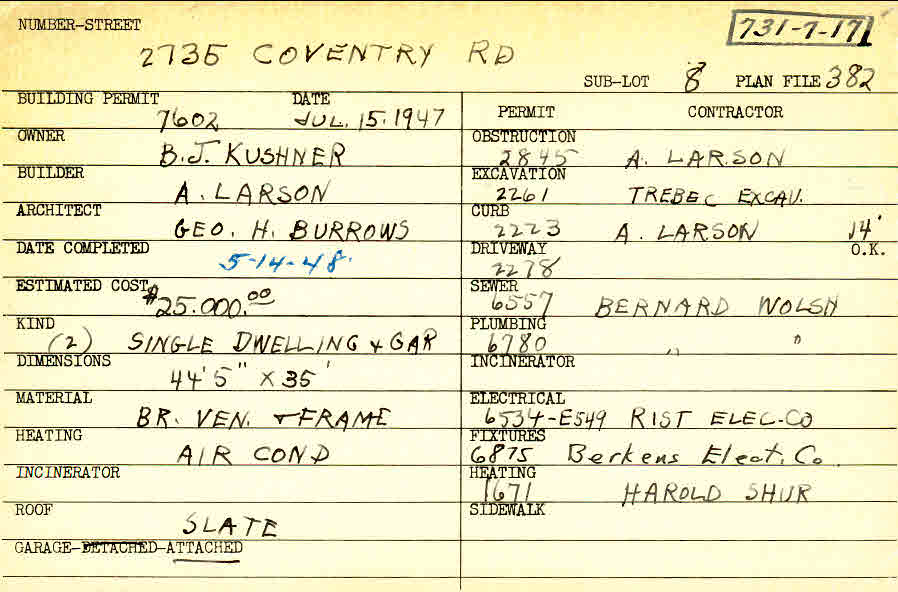 NUMBER-STREET
731-7-17
2735 COVENTRY RD
SUB-LOT 8 PLAN FILE 382
BUILDING PERMIT DATE
7602 JUL. 15. 1947
OWNER
B.J. KUSHNER
BUILDER
A. LARSON
ARCHITECT
GEO. H. BURROWS
DATE COMPLETED
5-14-48.
ESTIMATED COST
$25.000.00
KIND
(2) SINGLE DWELLING & GAR
DIMENSIONS
44'5" X 35'
MATERIAL
BR. VEN. & FRAME
HEATING
AIR COND
INCINERATOR
ROOF
SLATE
GARAGE-DETACHED-ATTACHED
PERMIT CONTRACTOR
OBSTRUCTION
2845 A. LARSON
EXCAVATION
2261 TREBEC EXCAV.
CURB
2223 A. LARSON 14'
DRIVEWAY O.K.
2278
SEWER
6557 BERNARD
PLUMBING
6780 " "
INCINERATOR
ELECTRICAL
6534-E549 RIST ELEC-CO
FIXTURES
6875 Berkens Elect. Co.
HEATING
1671 HAROLD SHUR
SIDEWALK